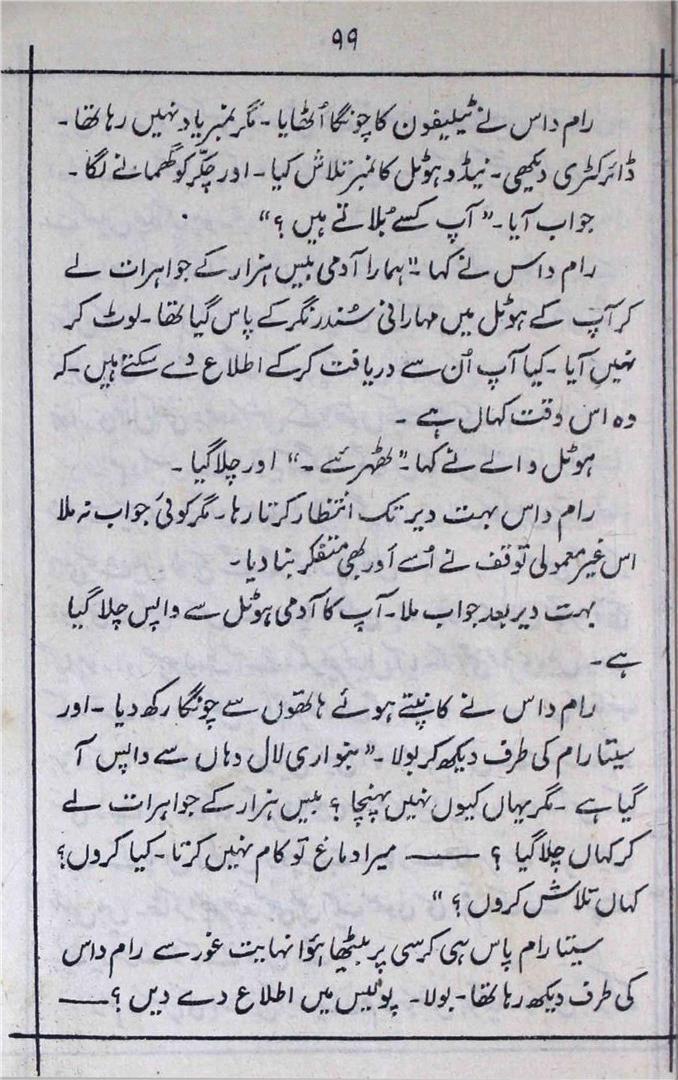 ۹۹
رام داس نے ٹیلیفون کا چونگا اُٹھایا۔ مگر نمبر یاد نہیں رہا تھا۔
ڈائرکٹری دیکھی۔ نیڈو ہوٹل کا نمبر تلاش کیا۔ اور چکّر کو گھمانے لگا۔
جواب آیا۔ ”آپ کسے بُلاتے ہیں؟“
رام داس نے کہا ”ہمارا آدمی بیس ہزار کے جواہرات لے
کر آپ کے ہوٹل میں مہارانی سُندر نگر کے پاس گیا تھا۔ لوٹ کر
نہیں آیا۔ کیا آپ اُن سے دریافت کرکے اطلاع دے سکتے ہیں۔ کہ
وہ اس وقت کہاں ہے۔
ہوٹل والے نے کہا۔ ”ٹھہرئے۔“ اور چلا گیا۔
رام داس بہت دیر تک انتظار کرتا رہا۔ مگر کوئی جواب نہ ملا
اس غیر معمولی توقف نے اُسے اَور بھی متفکر بنا دیا۔
بہت دیر بعد جواب ملا۔ آپ کا آدمی ہوٹل سے واپس چلا گیا
ہے۔
رام داس نے کانپتے ہوئے ہاتھوں سے چونگا رکھ دیا۔ اور
سیتا رام کی طرف دیکھ کر بولا۔ ”بنواری لال وہاں سے واپس آ
گیا ہے۔ مگر یہاں کیوں نہیں پہنچا؟ بیس ہزار کے جواہرات لے
کر کہاں چلا گیا؟ —— میرا دماغ تو کام نہیں کرتا۔ کیا کروں؟
کہاں تلاش کروں؟“
سیتا رام پاس ہی کرسی پر بیٹھا ہؤا نہایت غور سے رام داس
کی طرف دیکھ رہا تھا۔ بولا۔ پولیس میں اطلاع دے دیں؟ ——